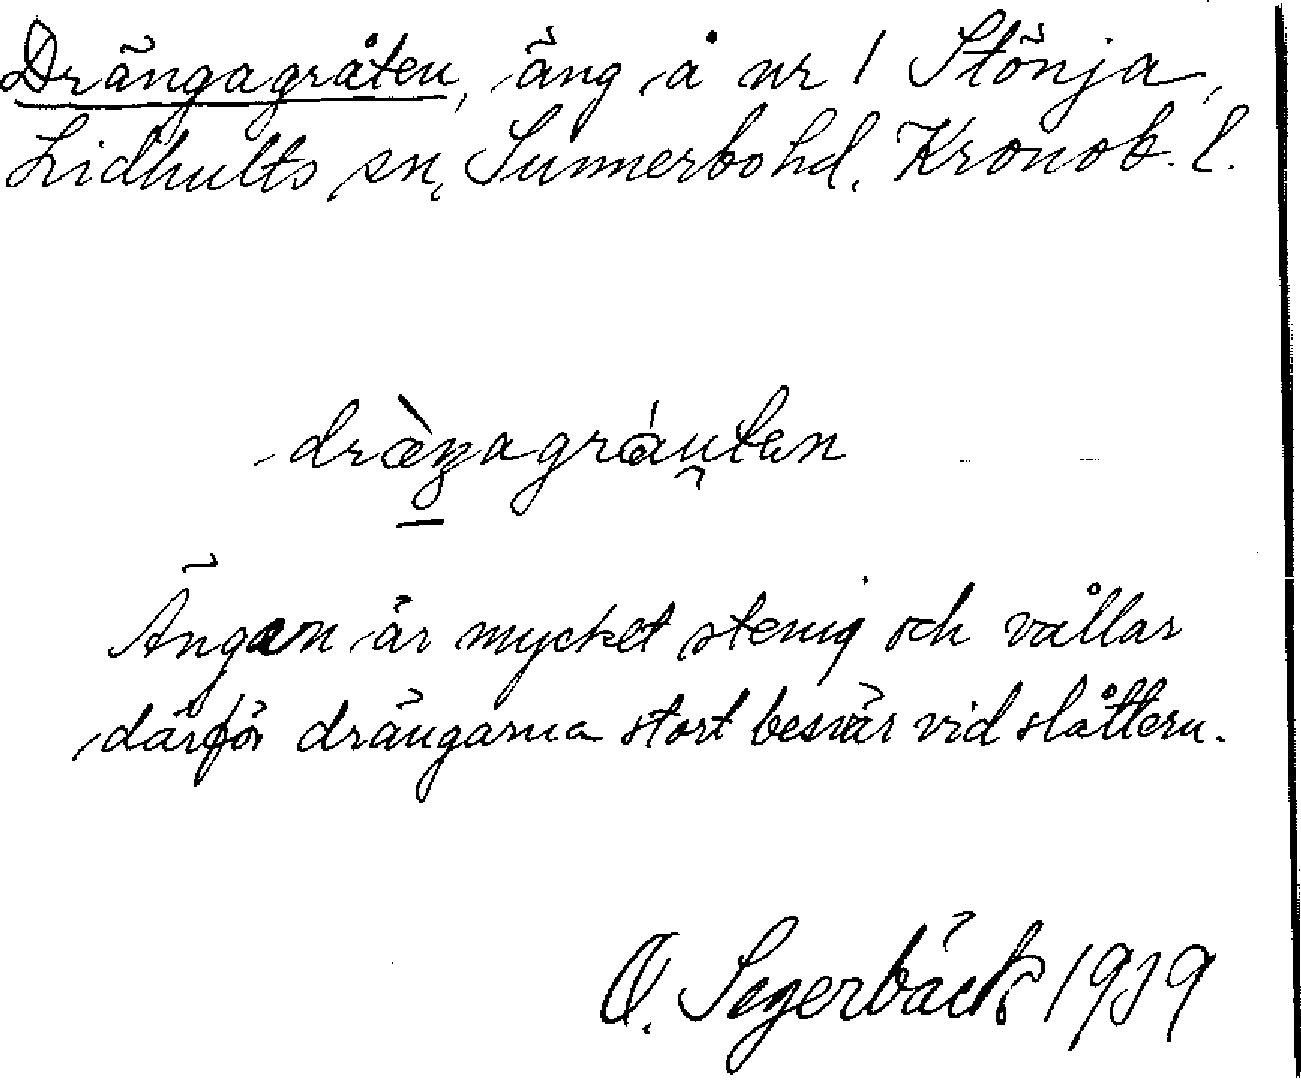 Drängagråten, äng å nr 1 Stönja,
Lidhults sn, Sunnerbo hd, Kronob. l.
Ängen är mycket stenig och vållar
därför drängarna stort besvär vid slåttern.
O. Segerbäck 1939